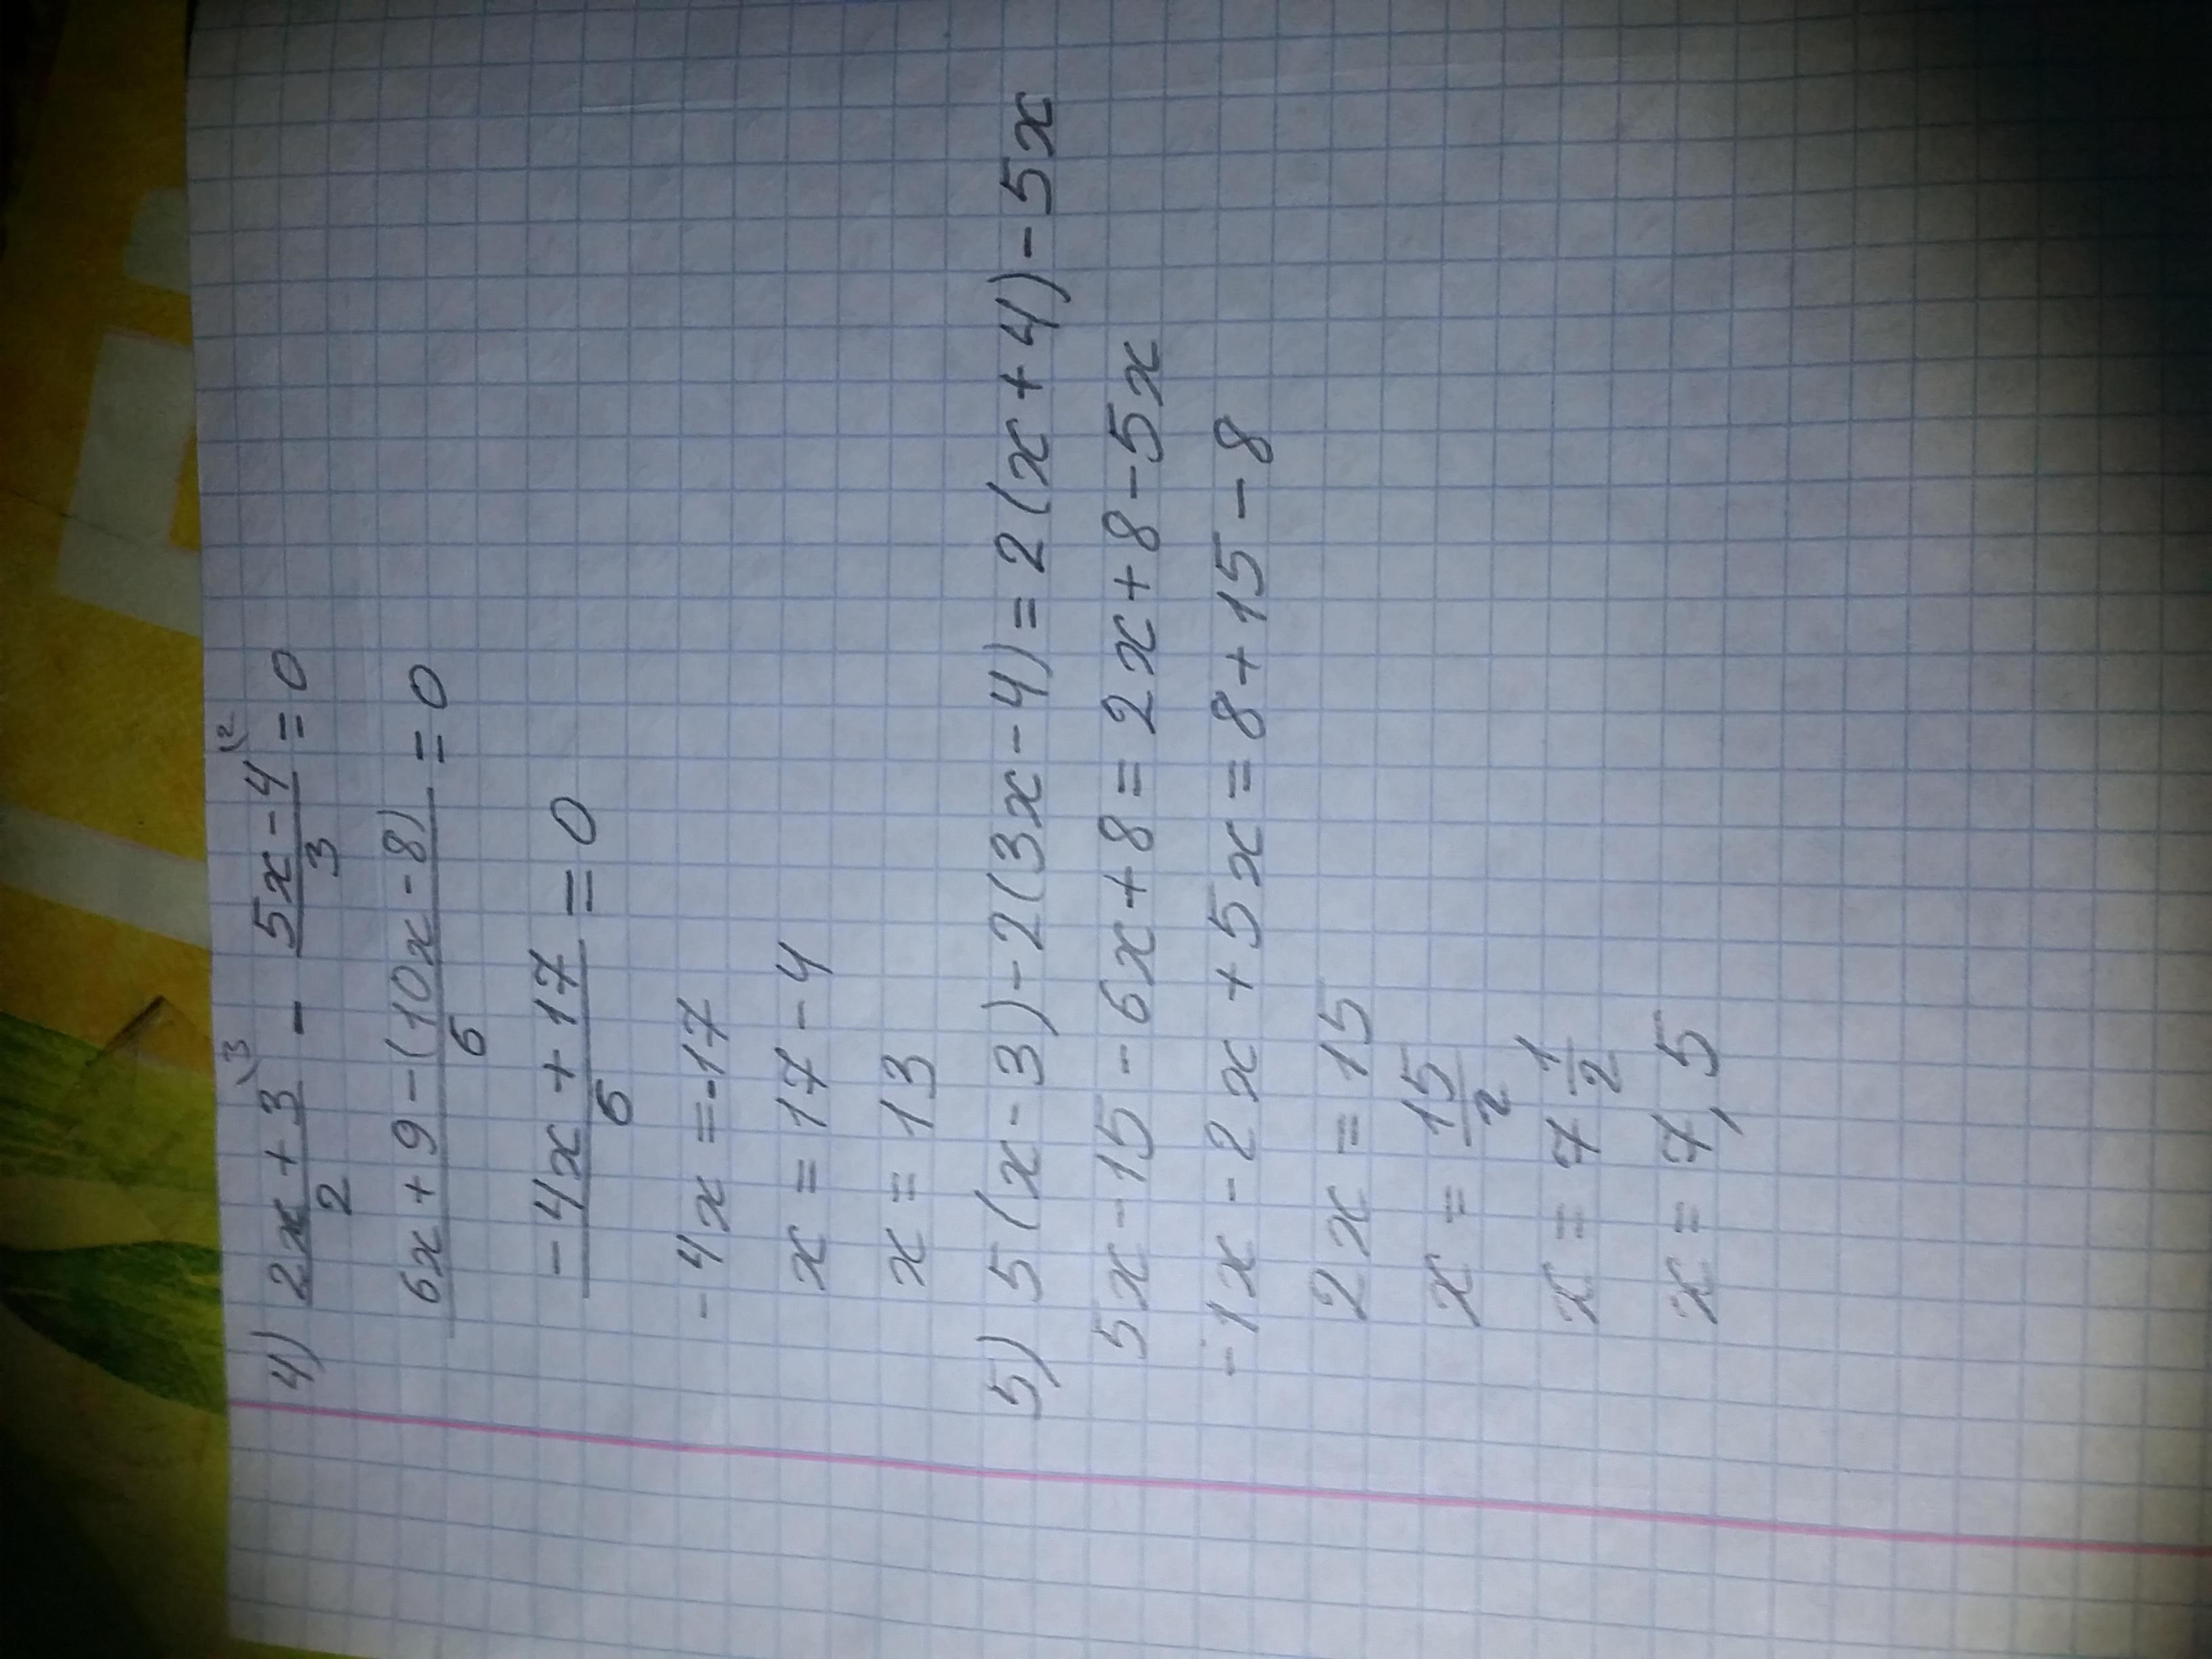 4) (2x+3)/2 \3 - (5x-4)/3 \2 = 0
(6x+9-(10x-8))/6 = 0
(-4x+17)/6 = 0
-4x=-17
x=17-4
x=13
5) 5(x-3)-2(3x-4)=2(x+4)-5x
5x-15-6x+8=2x+8-5x
-1x-2x+5x=8+15-8
2x=15
x=15/2
x=7 1/2
x=7,5